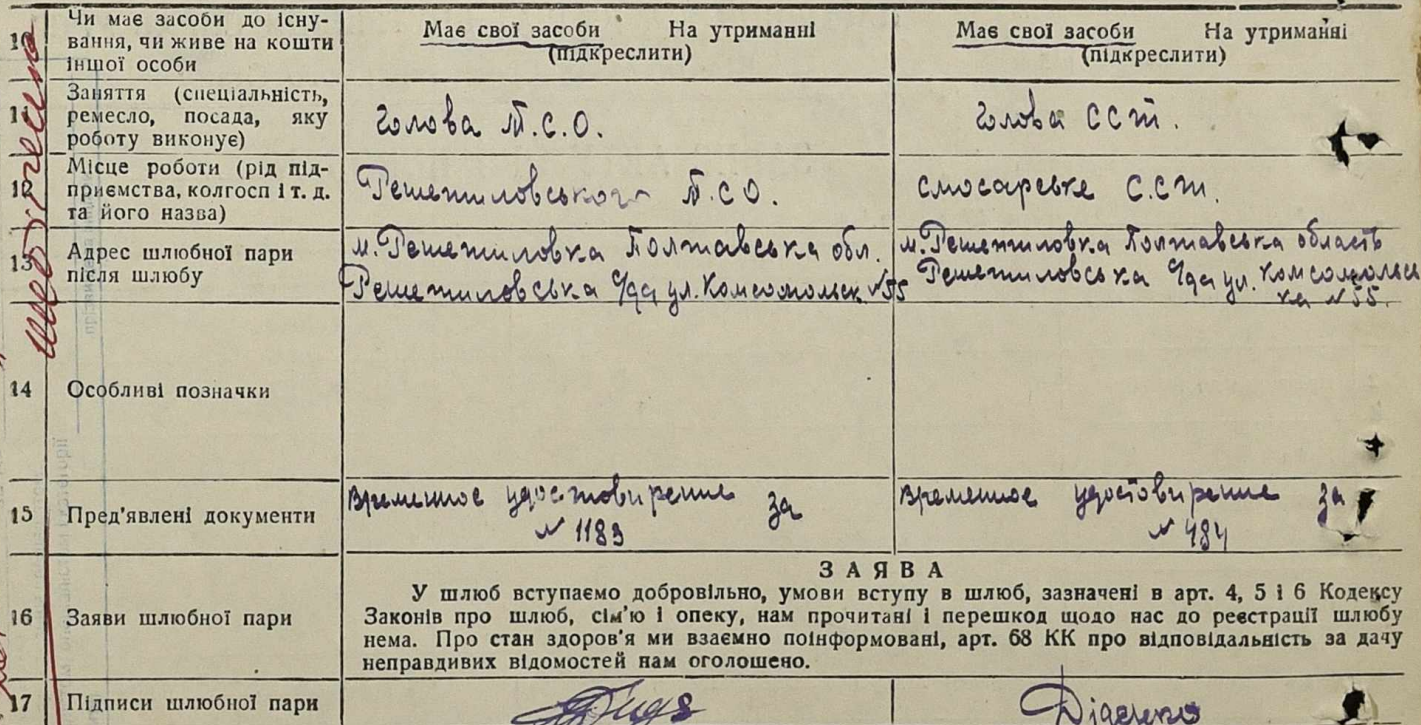 10 Чи має засоби до існування, чи живе на кошти іншої особи
Має свої засоби На утриманні (підкреслити)
Має свої засоби На утриманні (підкреслити)
11 Заняття (спеціальність, ремесло, посада, яку роботу виконує)
Голова Т.С.О.
Голова ССТ.
12 Місце роботи (рід підприємства, колгосп і т. д. та його назва)
Решетиловського Т.С.О.
С.С.Т.
13 Адрес шлюбної пари після шлюбу
м. Решетиловка Полтавська обл.
Решетиловська ул. Комсомольск №55
м. Решетиловка Полтавська область
Решетиловська ул. Комсомольська №55.
14 Особливі позначки
15 Пред'явлені документи
Временное удостовирение за
№ 1183
Временное удостовирение за
№ 484
16 Заяви шлюбної пари
ЗАЯВА
У шлюб вступаємо добровільно, умови вступу в шлюб, зазначені в арт. 4, 5 і 6 Кодексу
Законів про шлюб, сім'ю і опеку, нам прочитані і перешкод щодо нас до реєстрації шлюбу
нема. Про стан здоров'я ми взаємно поінформовані, арт. 68 КК про відповідальність за дачу
неправдивих відомостей нам оголошено.
17 Підписи шлюбної пари